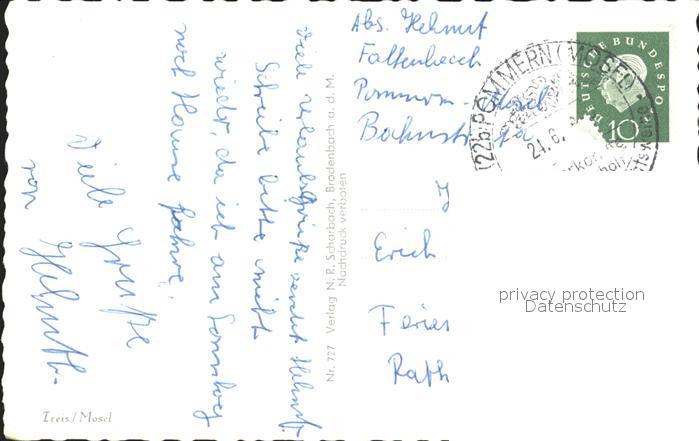 Viele Urlaubsgrüße sendet Helmut.
Schreibe bitte nicht
wieder, da ich am Sonntag
nach Hause fahre.
Viele Grüße
von Helmut.
Treis/Mosel
Nr. 727 Verlag N. R. Scharbach, Brodenbach a. d. M.
Nachdruck verboten
Abs. Helmut
Faltenbach
Pommern - Mosel
Bahnstr.
DEUTSCHE BUNDESPOST
10
(22b) POMMERN (MOSEL)
21.6.
Erich
Ferier
Rath
privacy protection
Datenschutz